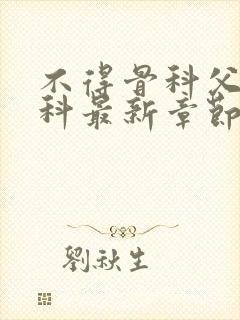 不得骨科父
科最新章節
劉秋生